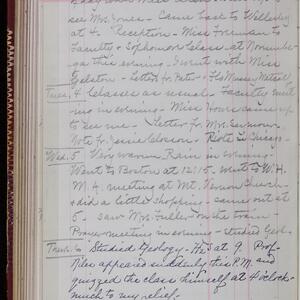 see Mrs. Jones - Came back to Wellesley
at 4. Reception - Miss Freeman to
Faculty & Sophomore Class - at Norumbe-
ga this evening - I went with Miss
Letter fr.
Tues. 4 Classes as usual. Faculty meet-
ing in evening - Miss came up
to see me. Letter fr. Mrs. Seymour.
Note fr. Jessie Closson. Riots in Chicago.
Wed. 5 Very warm. Rain in evening -
Went to Boston at 12:15. Went to W. H.
M. A. meeting at Mt. Vernon Church -
& did a little shopping - came out at
5. Saw Mrs. Fuller on the train -
Prayer meeting in evening - studied Geol.
Thurs. 6 Studied Geology - at 9. Prof.
Niles appeared suddenly this P.M. and
quizzed the class himself at 4 o'clock -
much to my relief.